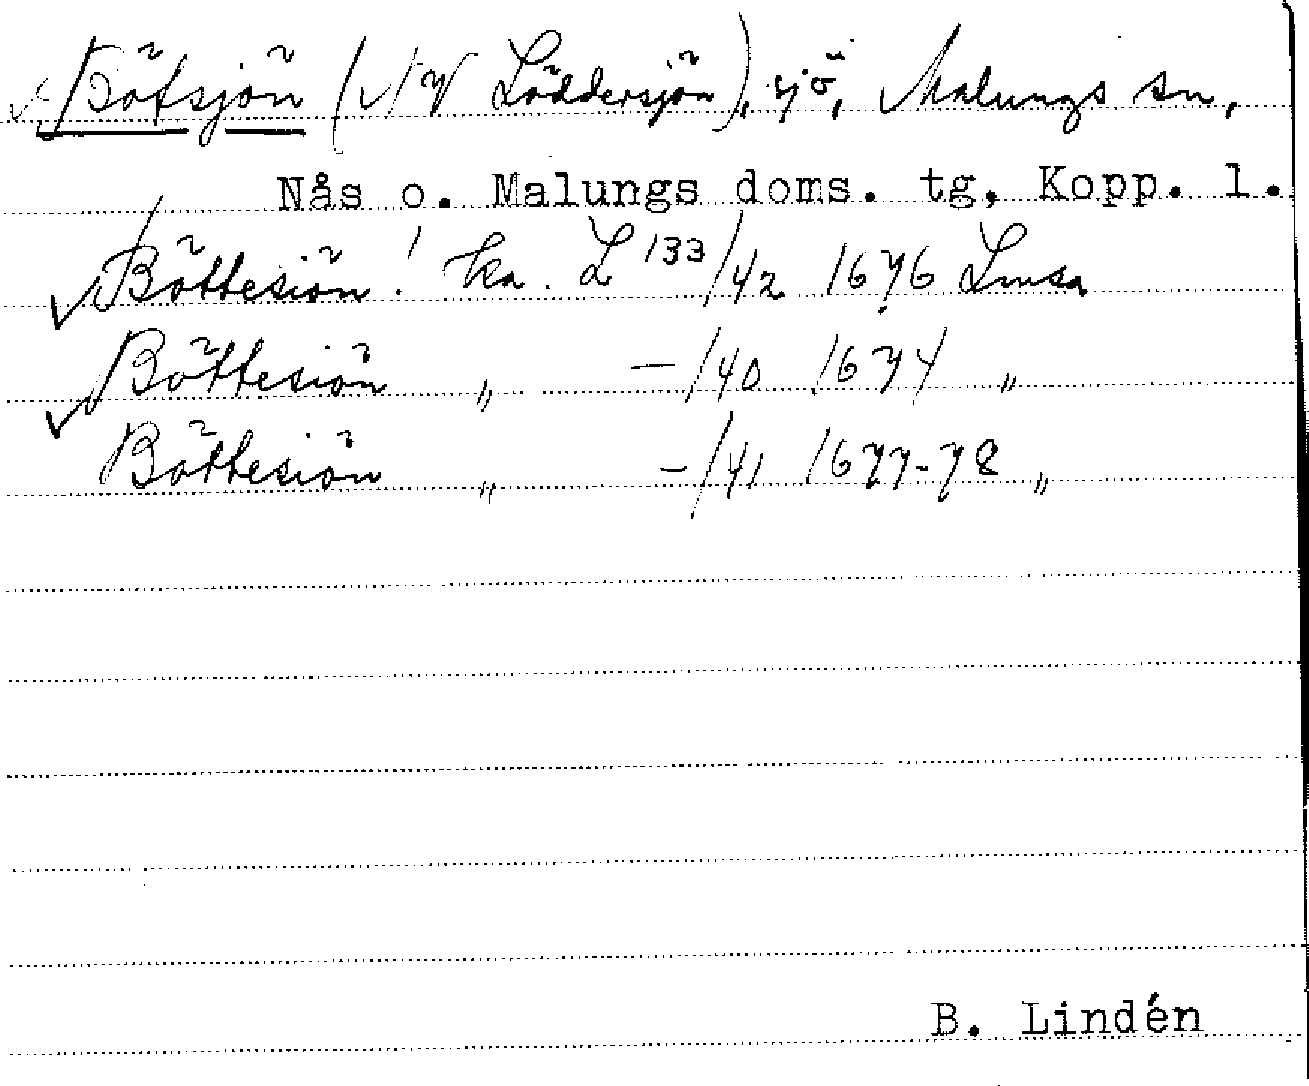 Bötsjön (NV Löddersjön), sjö, Malungs sn,
Nås o. Malungs doms. tg, Kopp. l.
Böttesiön! ka. L 133/42 1676 Lmsa
Böttesiön „ -/40 1674 „
Böttesiön „ -/41 1677-78 „
B. Lindén